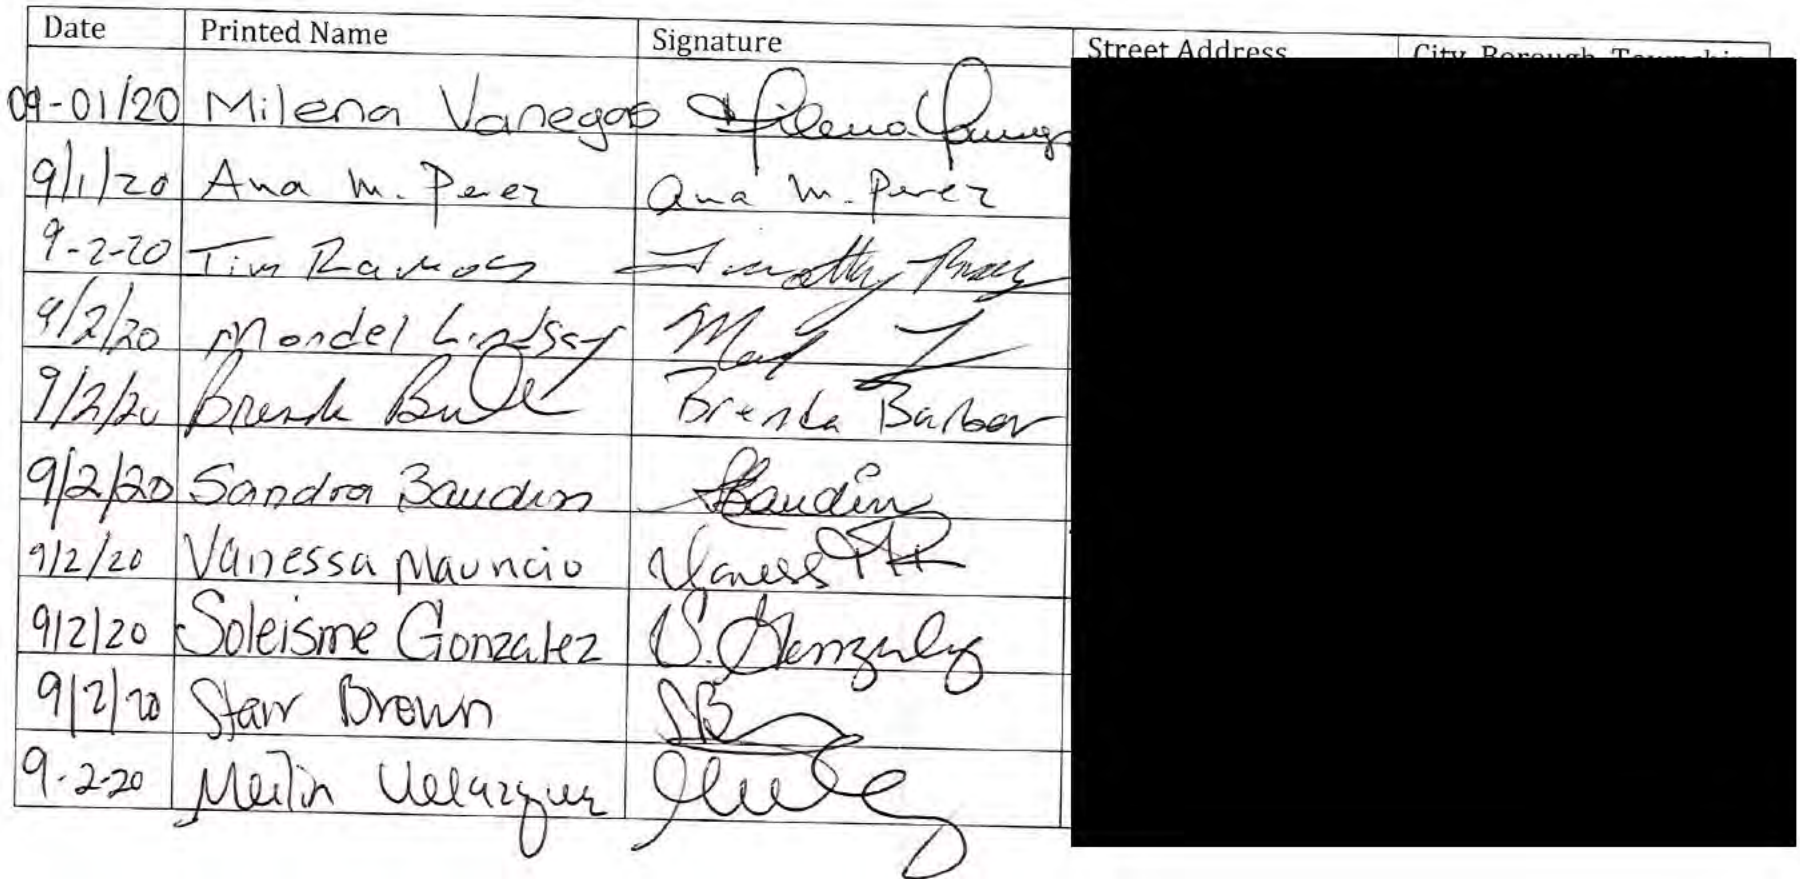 Date Printed Name Signature Street Address City, Borough, Township
09-01/20 Milena Vanegas Milena Vanegas
9/1/20 Ana M. Perez Ana M. Perez
9-2-20 Tim Ramos Timothy Ramos
9/2/20 Mondel Lindsay
9/2/20 Brenda Brenda Barber
9/2/20 Sandra Baudin SBaudin
9/2/20 Vanessa Mauricio Vaness
9/2/20 Soleisme Gonzalez S. Gonzalez
9/2/20 Starr Brown SB
9-2-20 Meilin Velazquez